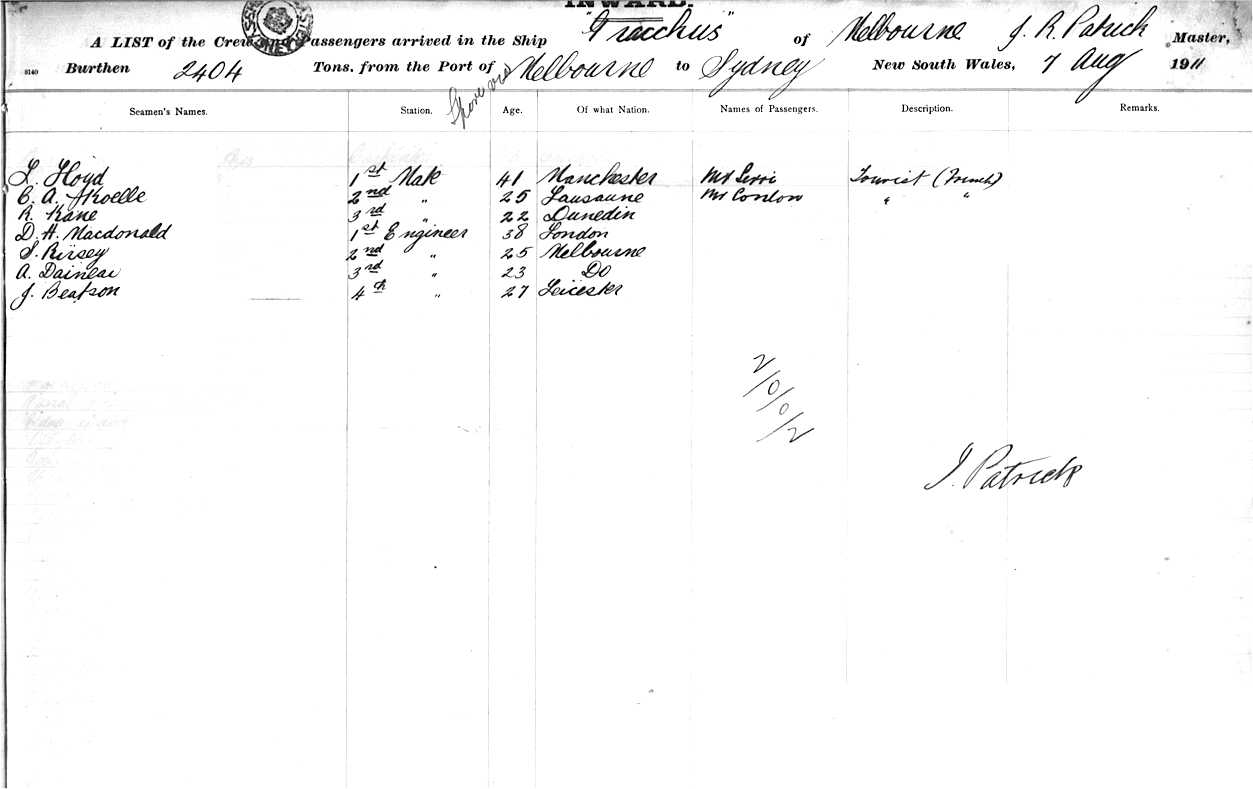 INWARD.
A LIST of the Crew and Passengers arrived in the Ship "Gracchus" of Melbourne J. R. Patrick Master,
0140 Burthen 2404 Tons, from the Port of Melbourne to Sydney New South Wales, 7 Aug 1911
Seamen's Names. Station. Age. Of what Nation. Names of Passengers. Description. Remarks.
L. Floyd 1st Mate 41 Manchester Mr Tourist (French)
C. A. 2nd " 25 Lausanne Mr Conlon " "
R. Kane 3rd " 22 Dunedin
D. H. Macdonald 1st Engineer 38 London
S. 2nd " 25 Melbourne
A. 3rd " 23 Do
J. Beatson 4th " 27 Leicester
2/0/0/2
J. Patrick